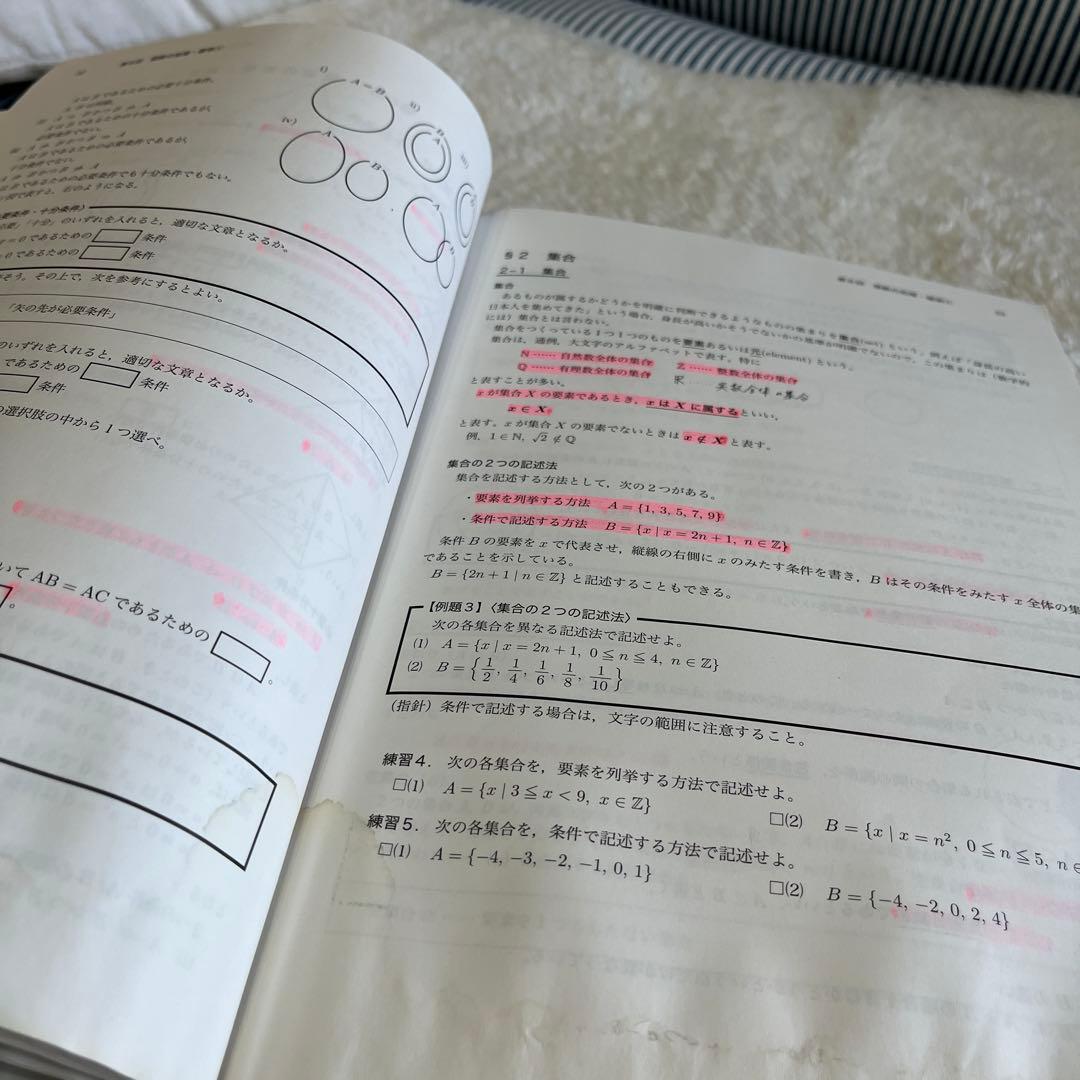 であるための必要十分条件,
であるための十分条件であるが,
必要条件でない。
であるための必要条件であるが,
十分条件でない。
であるための必要条件でも十分条件でもない。
で表すと, 右のようになる。
i)
A = B
ii)
B
A
iv)
A
B
A
B
要条件・十分条件〉
「十分」のいずれを入れると, 適切な文章となるか。
= 0 であるための 条件
0 であるための 条件
そう。その上で, 次を参考にするとよい。
「矢の先が必要条件」
のいずれを入れると, 適切な文章となるか。
であるための 条件
条件
の選択肢の中から1つ選べ。
いて AB = AC であるための 。
。
§2 集合
2-1 集合
集合
あるものが属するかどうかを明確に判断できるようなものの集まりを集合(set)という。例えば「身長の高い
日本人を集めてきた」という場合, 身長が高いかそうでないかの基準が明確でないので, この集まりは (数学的
には) 集合とは言わない。
集合をつくっている1つ1つのものを要素あるいは元(element)という。
集合は, 通例, 大文字のアルファベットで表す。特に
N …… 自然数全体の集合 Z …… 整数全体の集合
Q …… 有理数全体の集合 R …… 実数全体の集合
と表すことが多い。
x が集合 X の要素であるとき, x は X に属するといい,
x ∈ X,
と表す。x が集合 X の要素でないときは x ∉ X と表す。
例. 1 ∈ ℕ, √2 ∉ ℚ
集合の2つの記述法
集合を記述する方法として, 次の2つがある。
・要素を列挙する方法 A = {1, 3, 5, 7, 9}
・条件で記述する方法 B = {x | x = 2n + 1, n ∈ ℤ}
条件 B の要素を x で代表させ, 縦線の右側に x のみたす条件を書き, B はその条件をみたす x 全体の集
であることを示している。
B = {2n + 1 | n ∈ ℤ} と記述することもできる。
【例題3】〈集合の2つの記述法〉
次の各集合を異なる記述法で記述せよ。
(1) A = {x | x = 2n + 1, 0 ≦ n ≦ 4, n ∈ ℤ}
(2) B = {1/2, 1/4, 1/6, 1/8, 1/10}
(指針) 条件で記述する場合は, 文字の範囲に注意すること。
練習4. 次の各集合を, 要素を列挙する方法で記述せよ。
□(1) A = {x | 3 ≦ x < 9, x ∈ ℤ}
□(2) B = {x | x = n², 0 ≦ n ≦ 5, n ∈
練習5. 次の各集合を, 条件で記述する方法で記述せよ。
□(1) A = {−4, −3, −2, −1, 0, 1}
□(2) B = {−4, −2, 0, 2, 4}